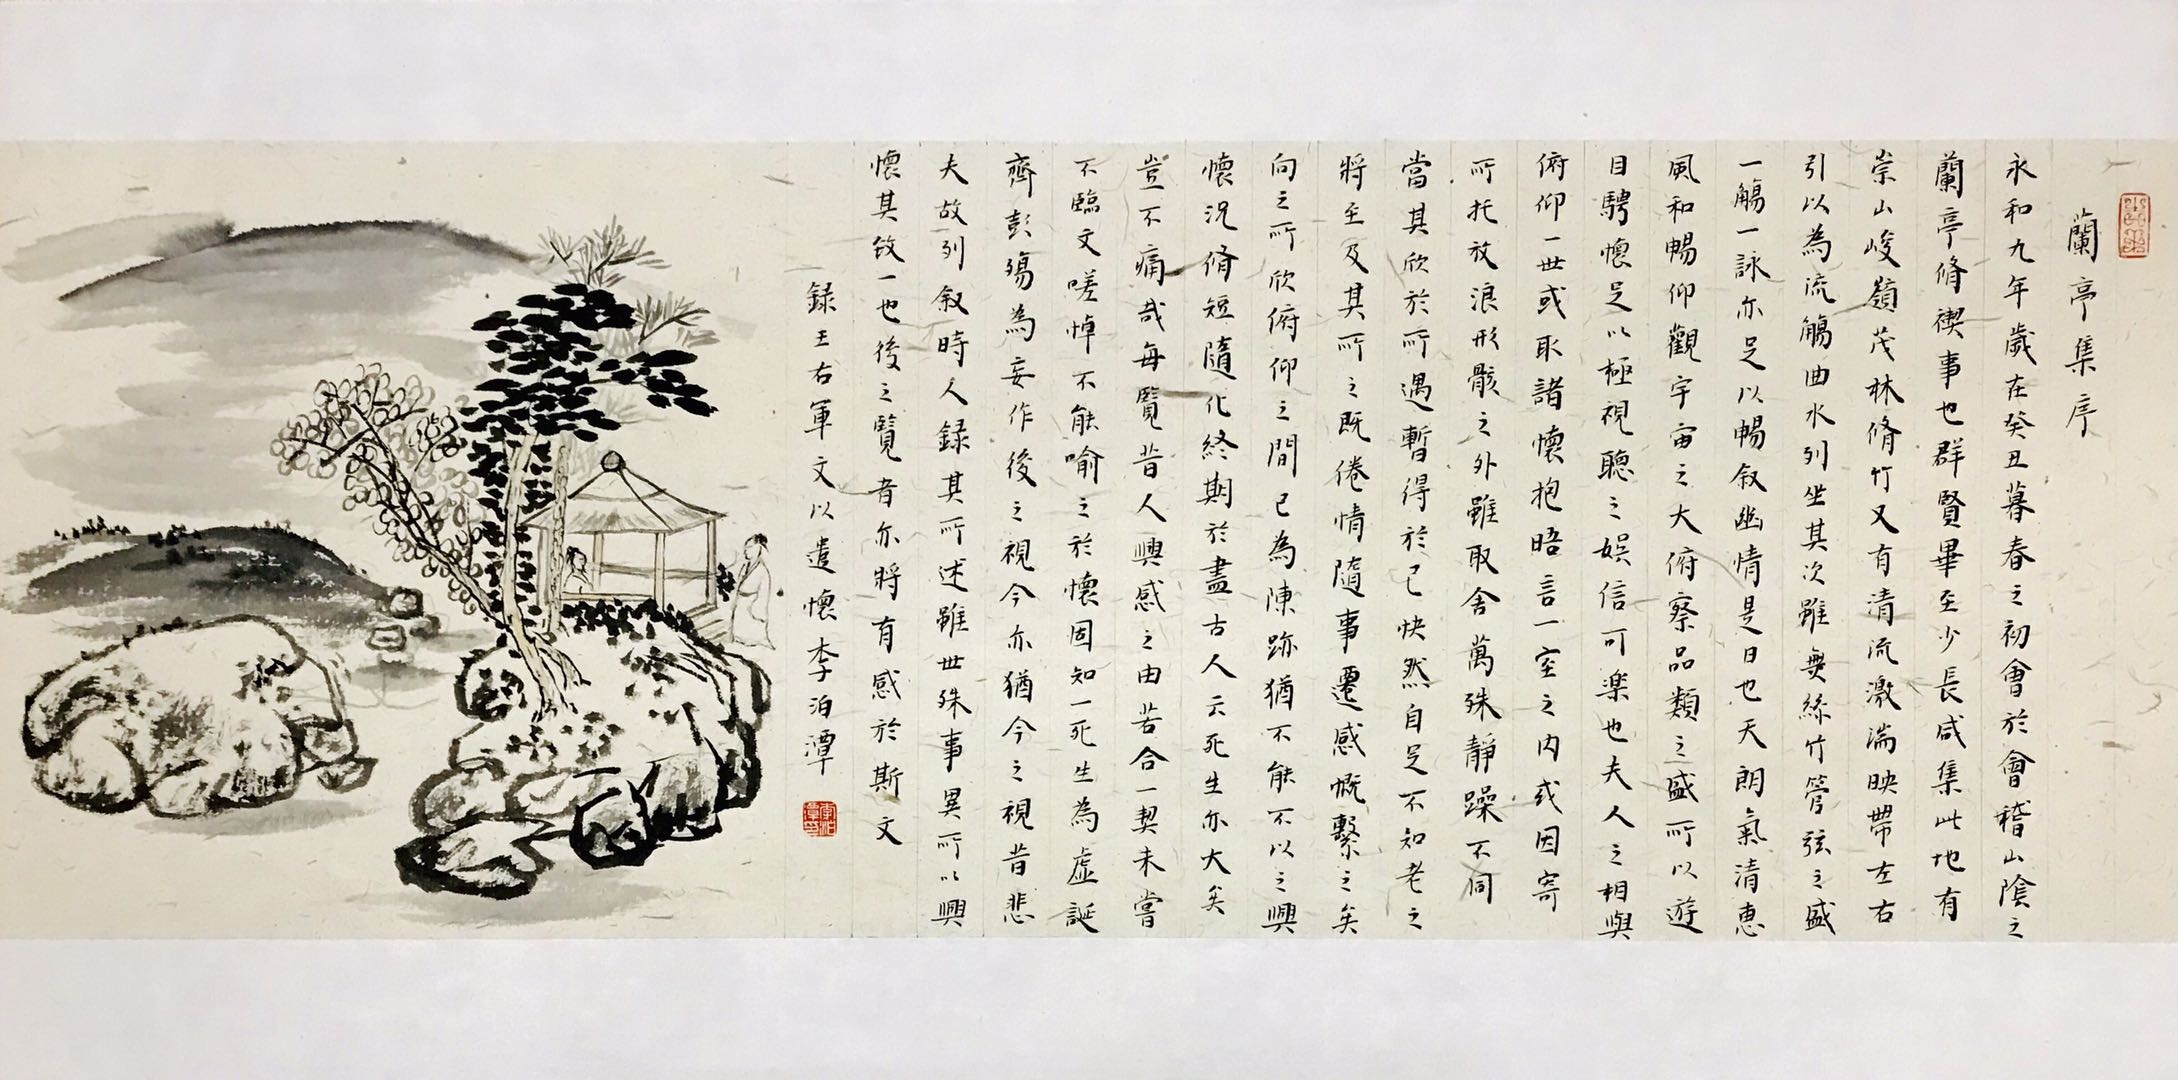 蘭亭集序
永和九年歲在癸丑暮春之初會於會稽山陰之
蘭亭脩禊事也群賢畢至少長咸集此地有
崇山峻嶺茂林脩竹又有清流激湍映帶左右
引以為流觴曲水列坐其次雖無絲竹管弦之盛
一觴一詠亦足以暢叙幽情是日也天朗氣清惠
風和暢仰觀宇宙之大俯察品類之盛所以遊
目騁懷足以極視聽之娛信可樂也夫人之相與
俯仰一世或取諸懷抱晤言一室之内或因寄
所托放浪形骸之外雖取舍萬殊靜躁不同
當其欣於所遇暫得於己快然自足不知老之
將至及其所之既倦情隨事遷感慨繫之矣
向之所欣俯仰之間已為陳跡猶不能不以之興
懷況脩短隨化終期於盡古人云死生亦大矣
豈不痛哉每覽昔人興感之由若合一契未嘗
不臨文嗟悼不能喻之於懷固知一死生為虛誕
齊彭殤為妄作後之視今亦猶今之視昔悲
夫故列叙時人録其所述雖世殊事異所以興
懷其致一也後之覽者亦將有感於斯文
録王右軍文以遣懷李泊潭